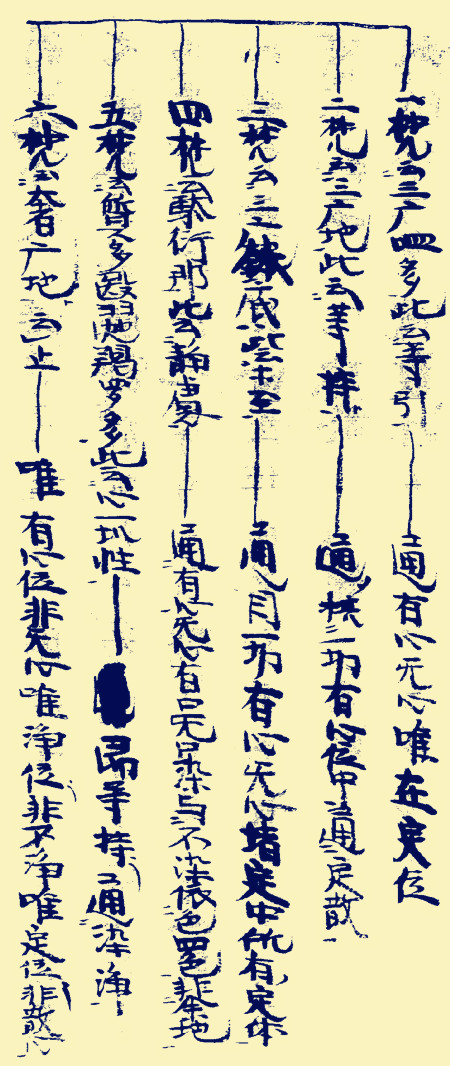 一梵云三广四多此云等引 通有心无心唯在定位
二梵云三广地此云等持 通摂一切有心位中通定散
三梵云三广鉢底此云等至 通目一切有心无心諸定中所有定体
四梵云駄衍那此云静虑 通有心无心有漏无漏染与不染依色四色非余地
五梵云質多翳迦羯罗多此云心一境性 即等持通染净
六梵云奢广他云止 唯有心位非无心唯净位非不净唯定位非散心